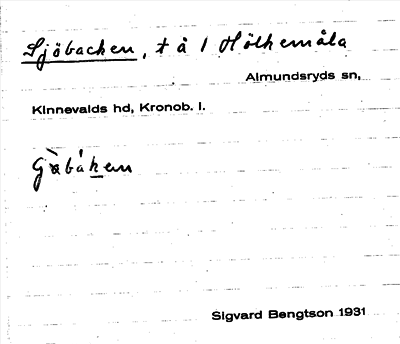 Sjöbacken, t å 1 Hölkemåla
Almundsryds sn,
Kinnevalds hd, Kronob. l.
Sigvard Bengtson 1931